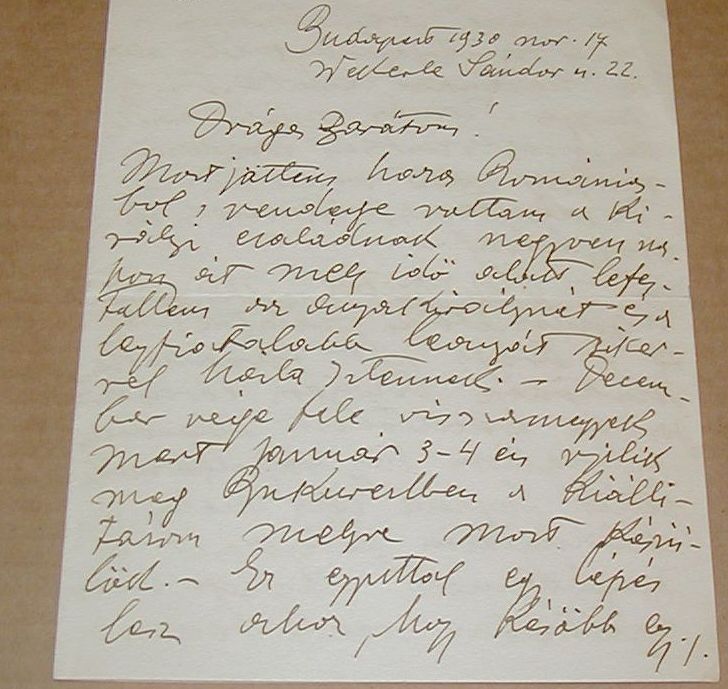 Budapest 1930 nov. 17
Wekerle Sándor u. 22.
Drága Barátom!
Most jöttem haza Románia-
ból, vendége voltam a Ki-
rályi családnak negyven na-
pon át mely idő alatt lefes-
tettem az anyakirálynét és a
legfiatalabb leányát siker-
rel hála Istennek. – Decem-
ber vége fele visszamegyek
mert január 3-4 én nyílik
meg Bukarestben a Kiálli-
tásom melyre most készü-
lök. – Ez egyuttal egy lépés
lesz ahoz, hogy később egy
./.